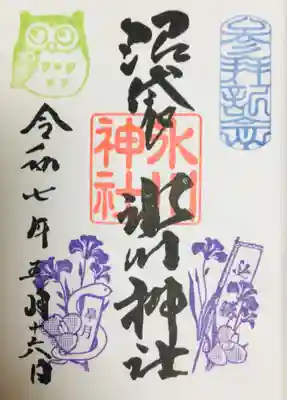 参拝記念
沼袋
氷川神社
氷川
神社
令和七年五月十六日
皐月